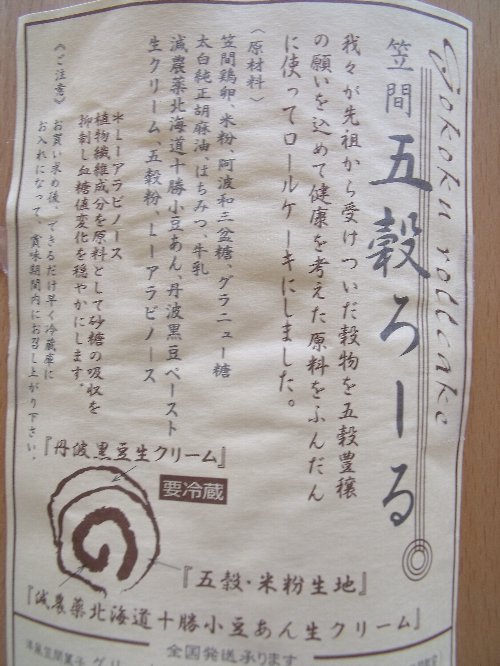 Gokoku rollcake
笠間 五穀ろーる
我々が先祖から受けついだ穀物を五穀豊穣
の願いを込めて健康を考えた原料をふんだん
に使ってロールケーキにしました。
〈原材料〉
笠間鶏卵、米粉、阿波和三盆糖、グラニュー糖
太白純正胡麻油、はちみつ、牛乳
減農薬北海道十勝小豆あん、丹波黒豆ペースト
生クリーム、五穀粉、L－アラビノース
＊L－アラビノース
植物繊維成分を原料として砂糖の吸収を
抑制し血糖値変化を穏やかにします。
《ご注意》
お買い求め後、できるだけ早く冷蔵庫に
お入れになって、賞味期間内にお召し上がり下さい。
『丹波黒豆生クリーム』
要冷蔵
『五穀・米粉生地』
『減農薬北海道十勝小豆あん生クリーム』
全国発送承ります
洋菓笠間菓子 グリ